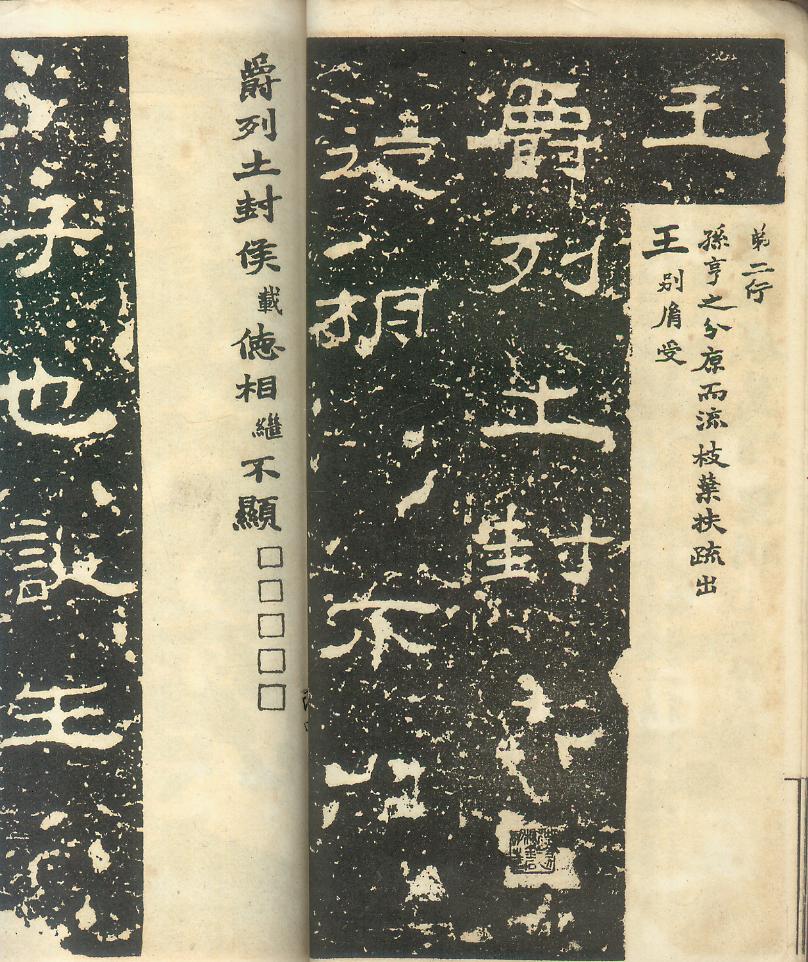 王
第二行
孫亨之分原而流枝葉扶疏出
王別膺受
爵列土封
德相
不顯
爵列土封侯載德相繼不顯□□□□□
子也誕生